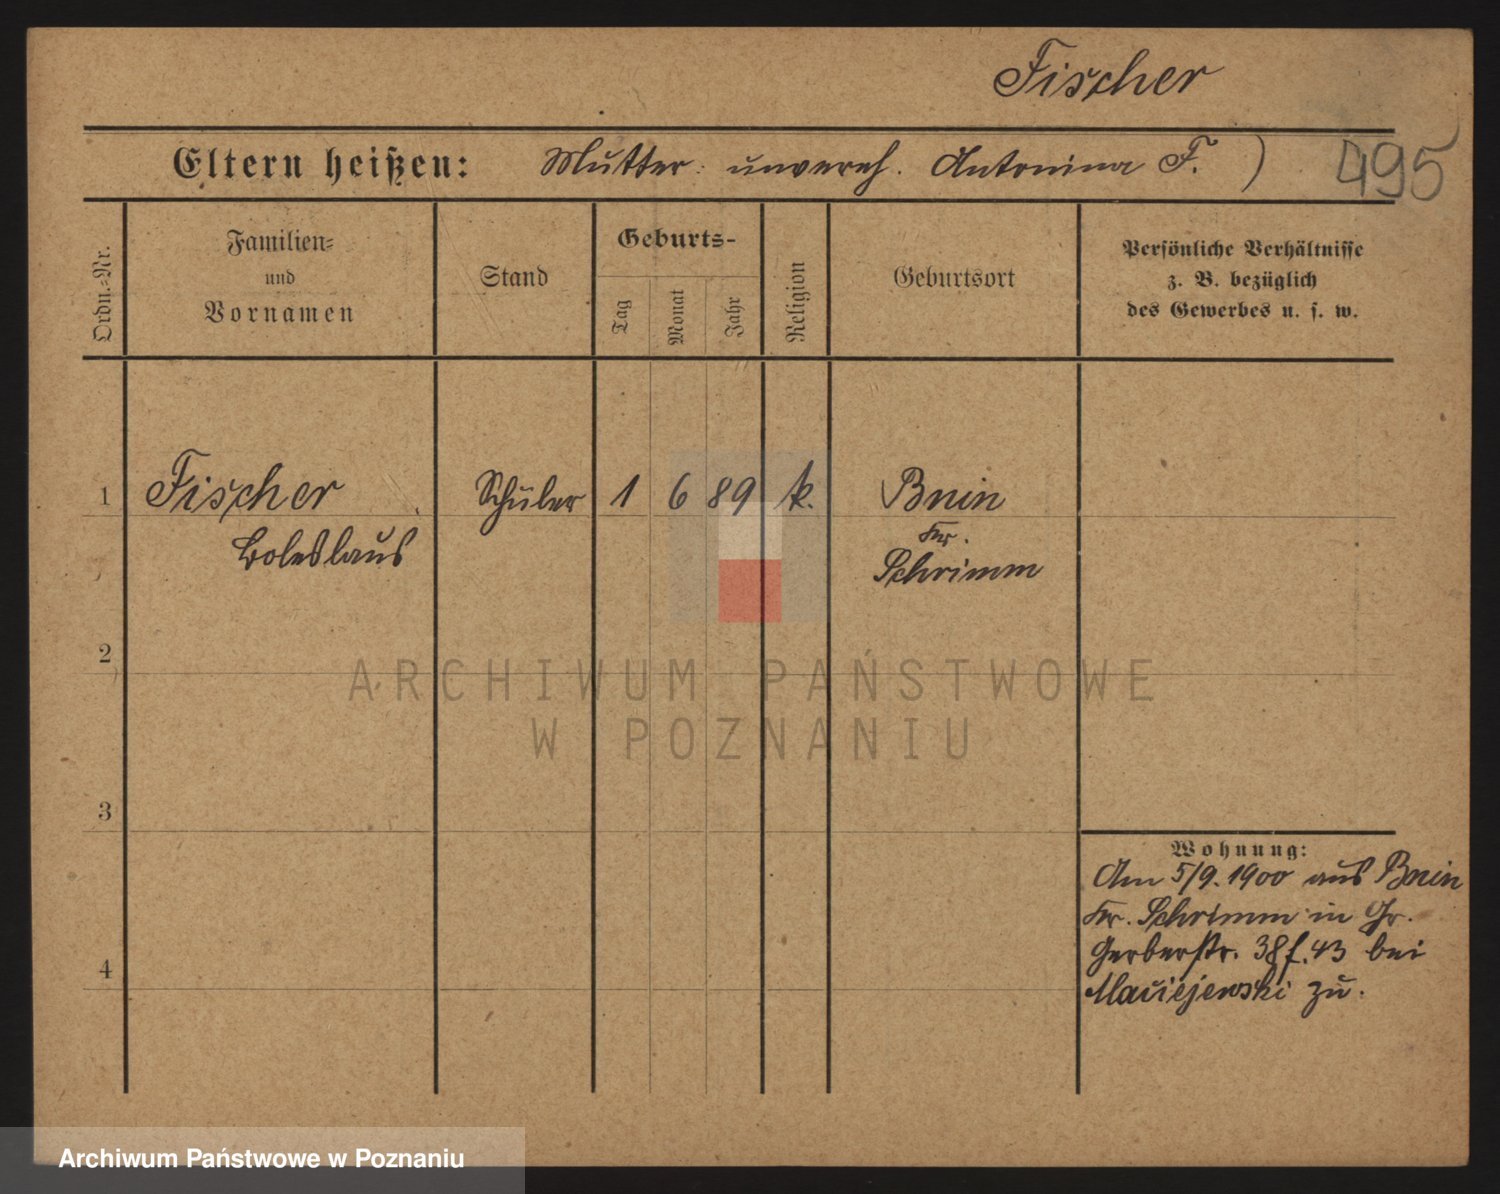 Fischer
Eltern heißen: Mutter: unvereh. Antonina F. )
495
Ordn.-Nr.
Familien-
und
Vornamen
Stand
Geburts-
Tag
Monat
Jahr
Religion
Geburtsort
Persönliche Verhältnisse
z. B. bezüglich
des Gewerbes u. s. w.
1 Fischer Schüler 1 6 89 k. Bnin
Boleslaus
Kr.
Schrimm
2
3
4
Wohnung:
Am 5/9. 1900 aus Bnin
Kr. Schrimm in Gr.
Gerberstr. 38 f. 43 bei
Maciejewski zu.
ARCHIWUM PAŃSTWOWE
W POZNANIU
Archiwum Państwowe w Poznaniu